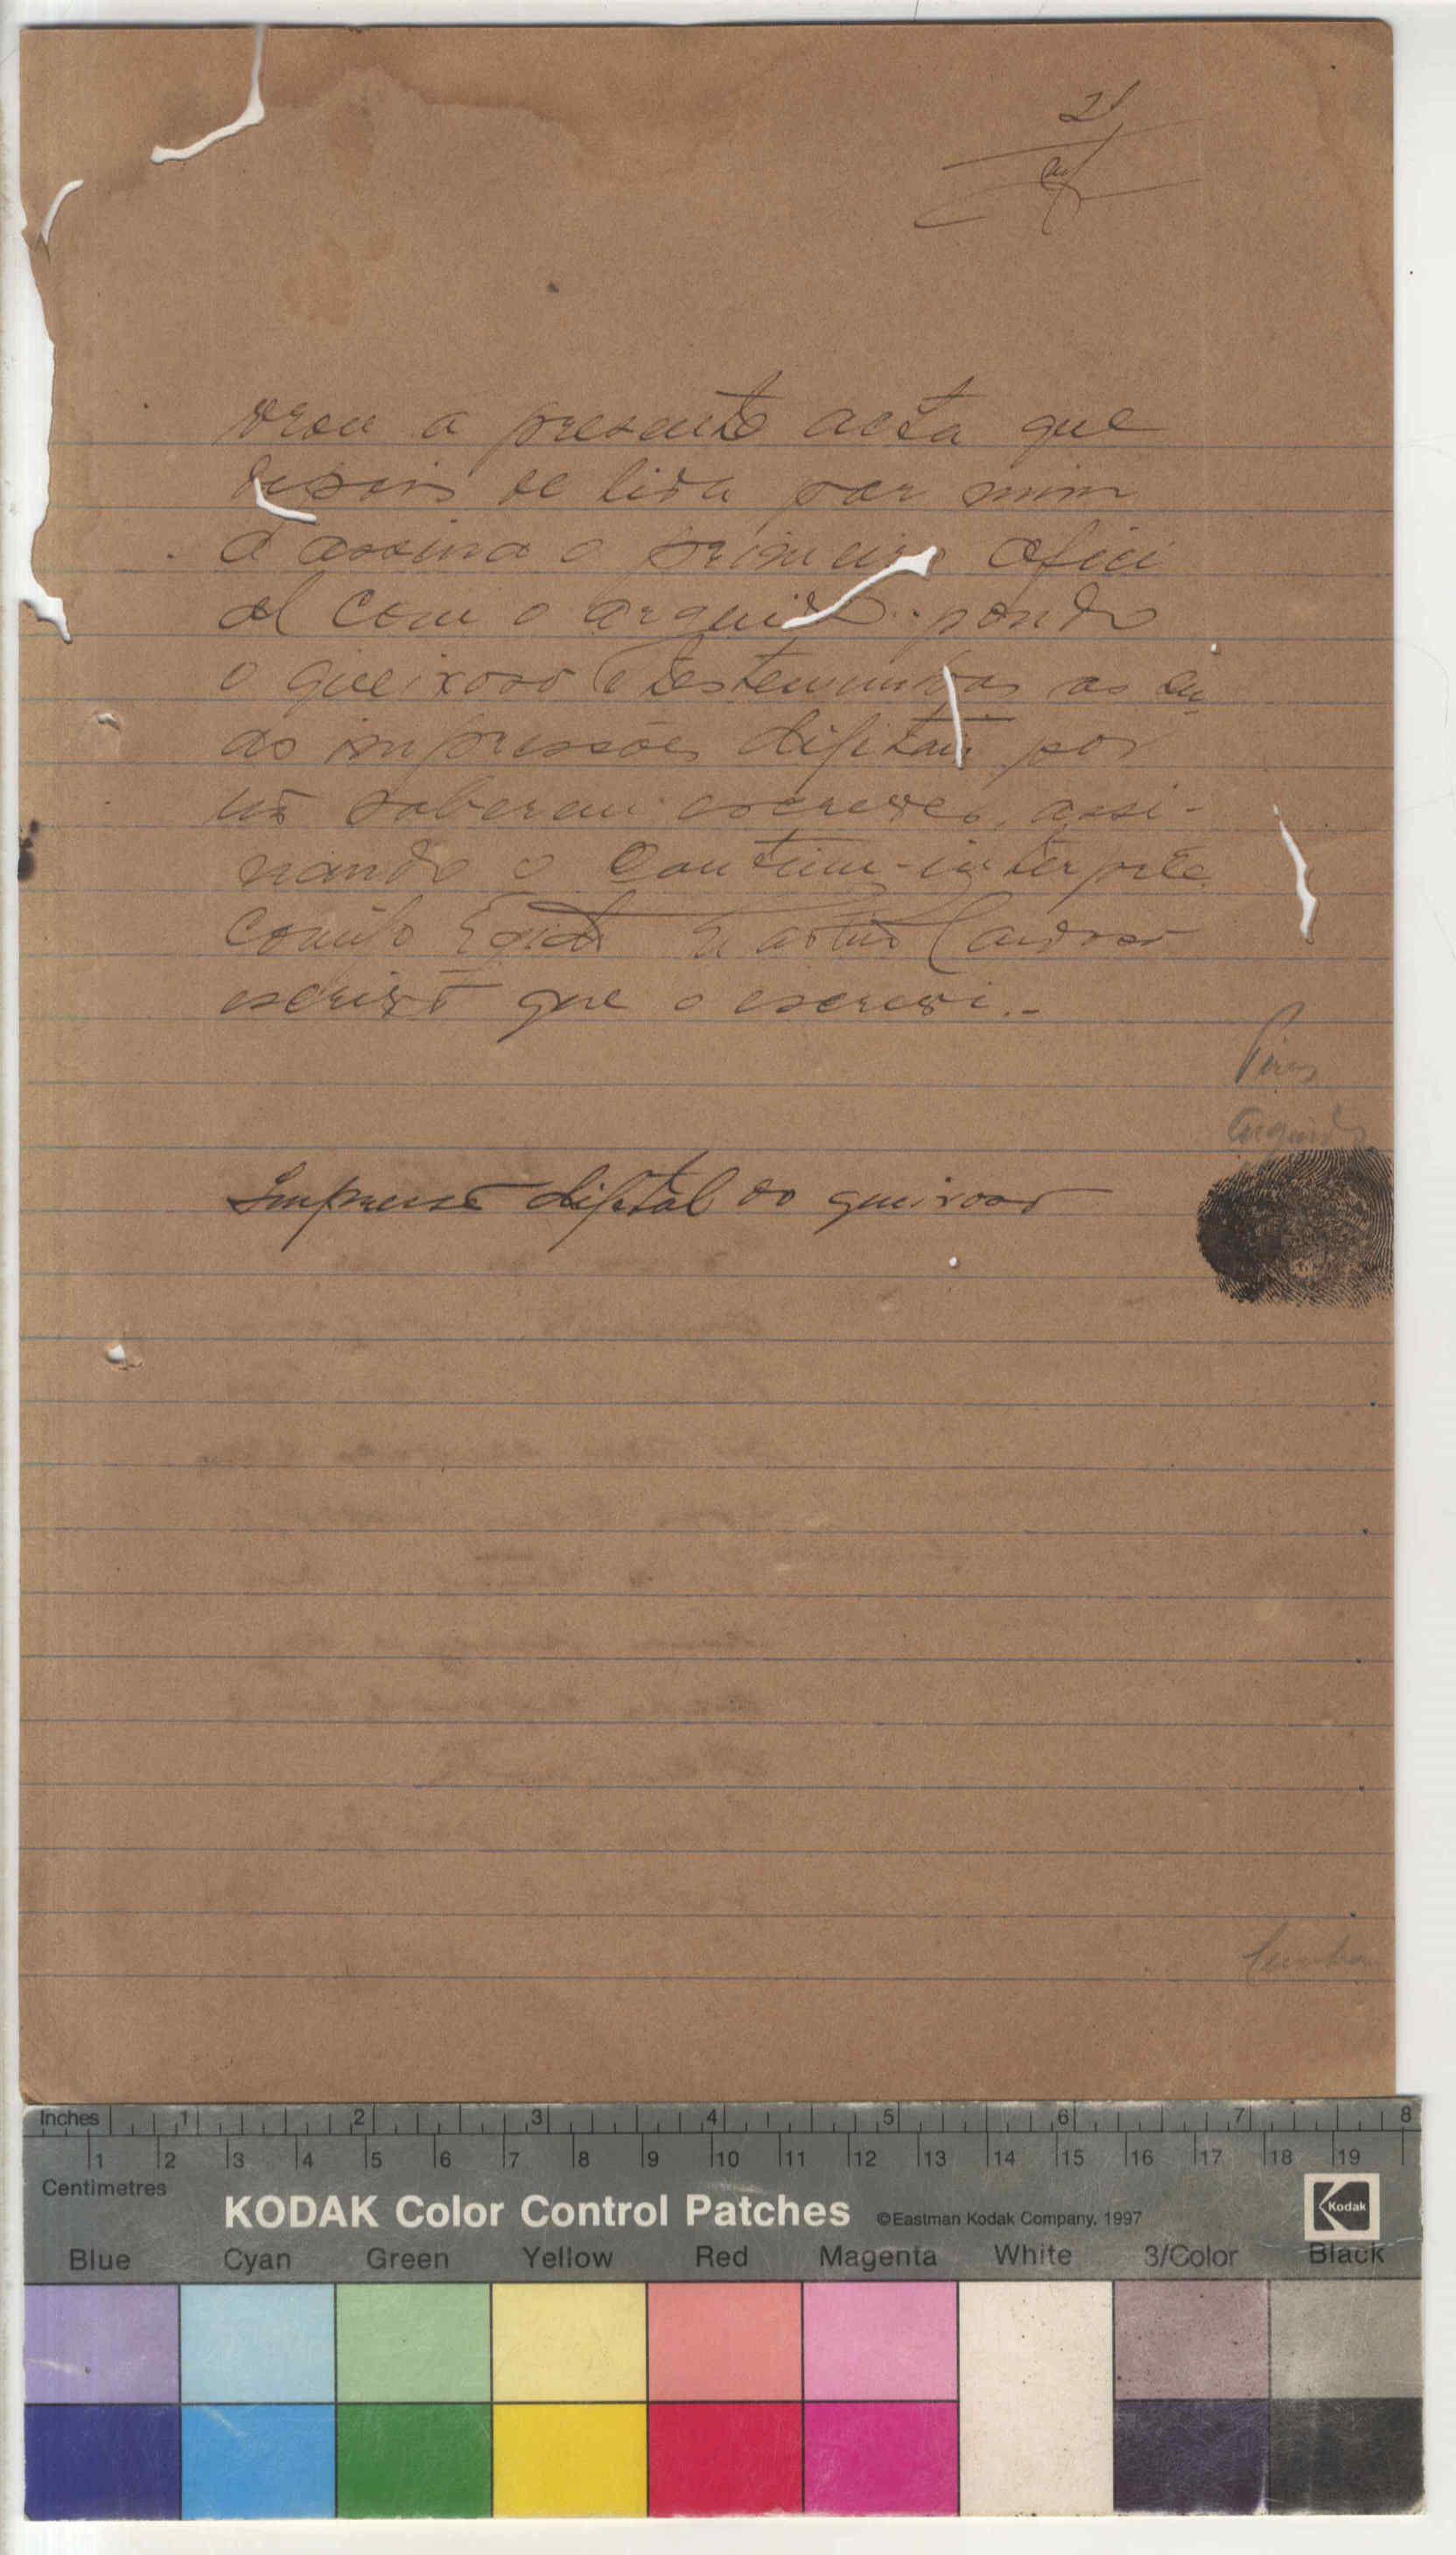 21
vrou a presente acta que
depois de lida por mim
a assina o primeiro ofici
al com o arguido pondo
o queixoso e testemunhas as su
as impressões digitais por
nõ saberem escrever, assi-
nando o Continuo-interprete
comigo Egidio Cardoso
escrivõ que o escrevi.-
Pires
Arguido
Impressõ digital do queixoso
Inches 1 2 3 4 5 6 7 8
1 2 3 4 5 6 7 8 9 10 11 12 13 14 15 16 17 18 19
Centimetres
KODAK Color Control Patches ©Eastman Kodak Company, 1997 Kodak
Blue Cyan Green Yellow Red Magenta White 3/Color Black